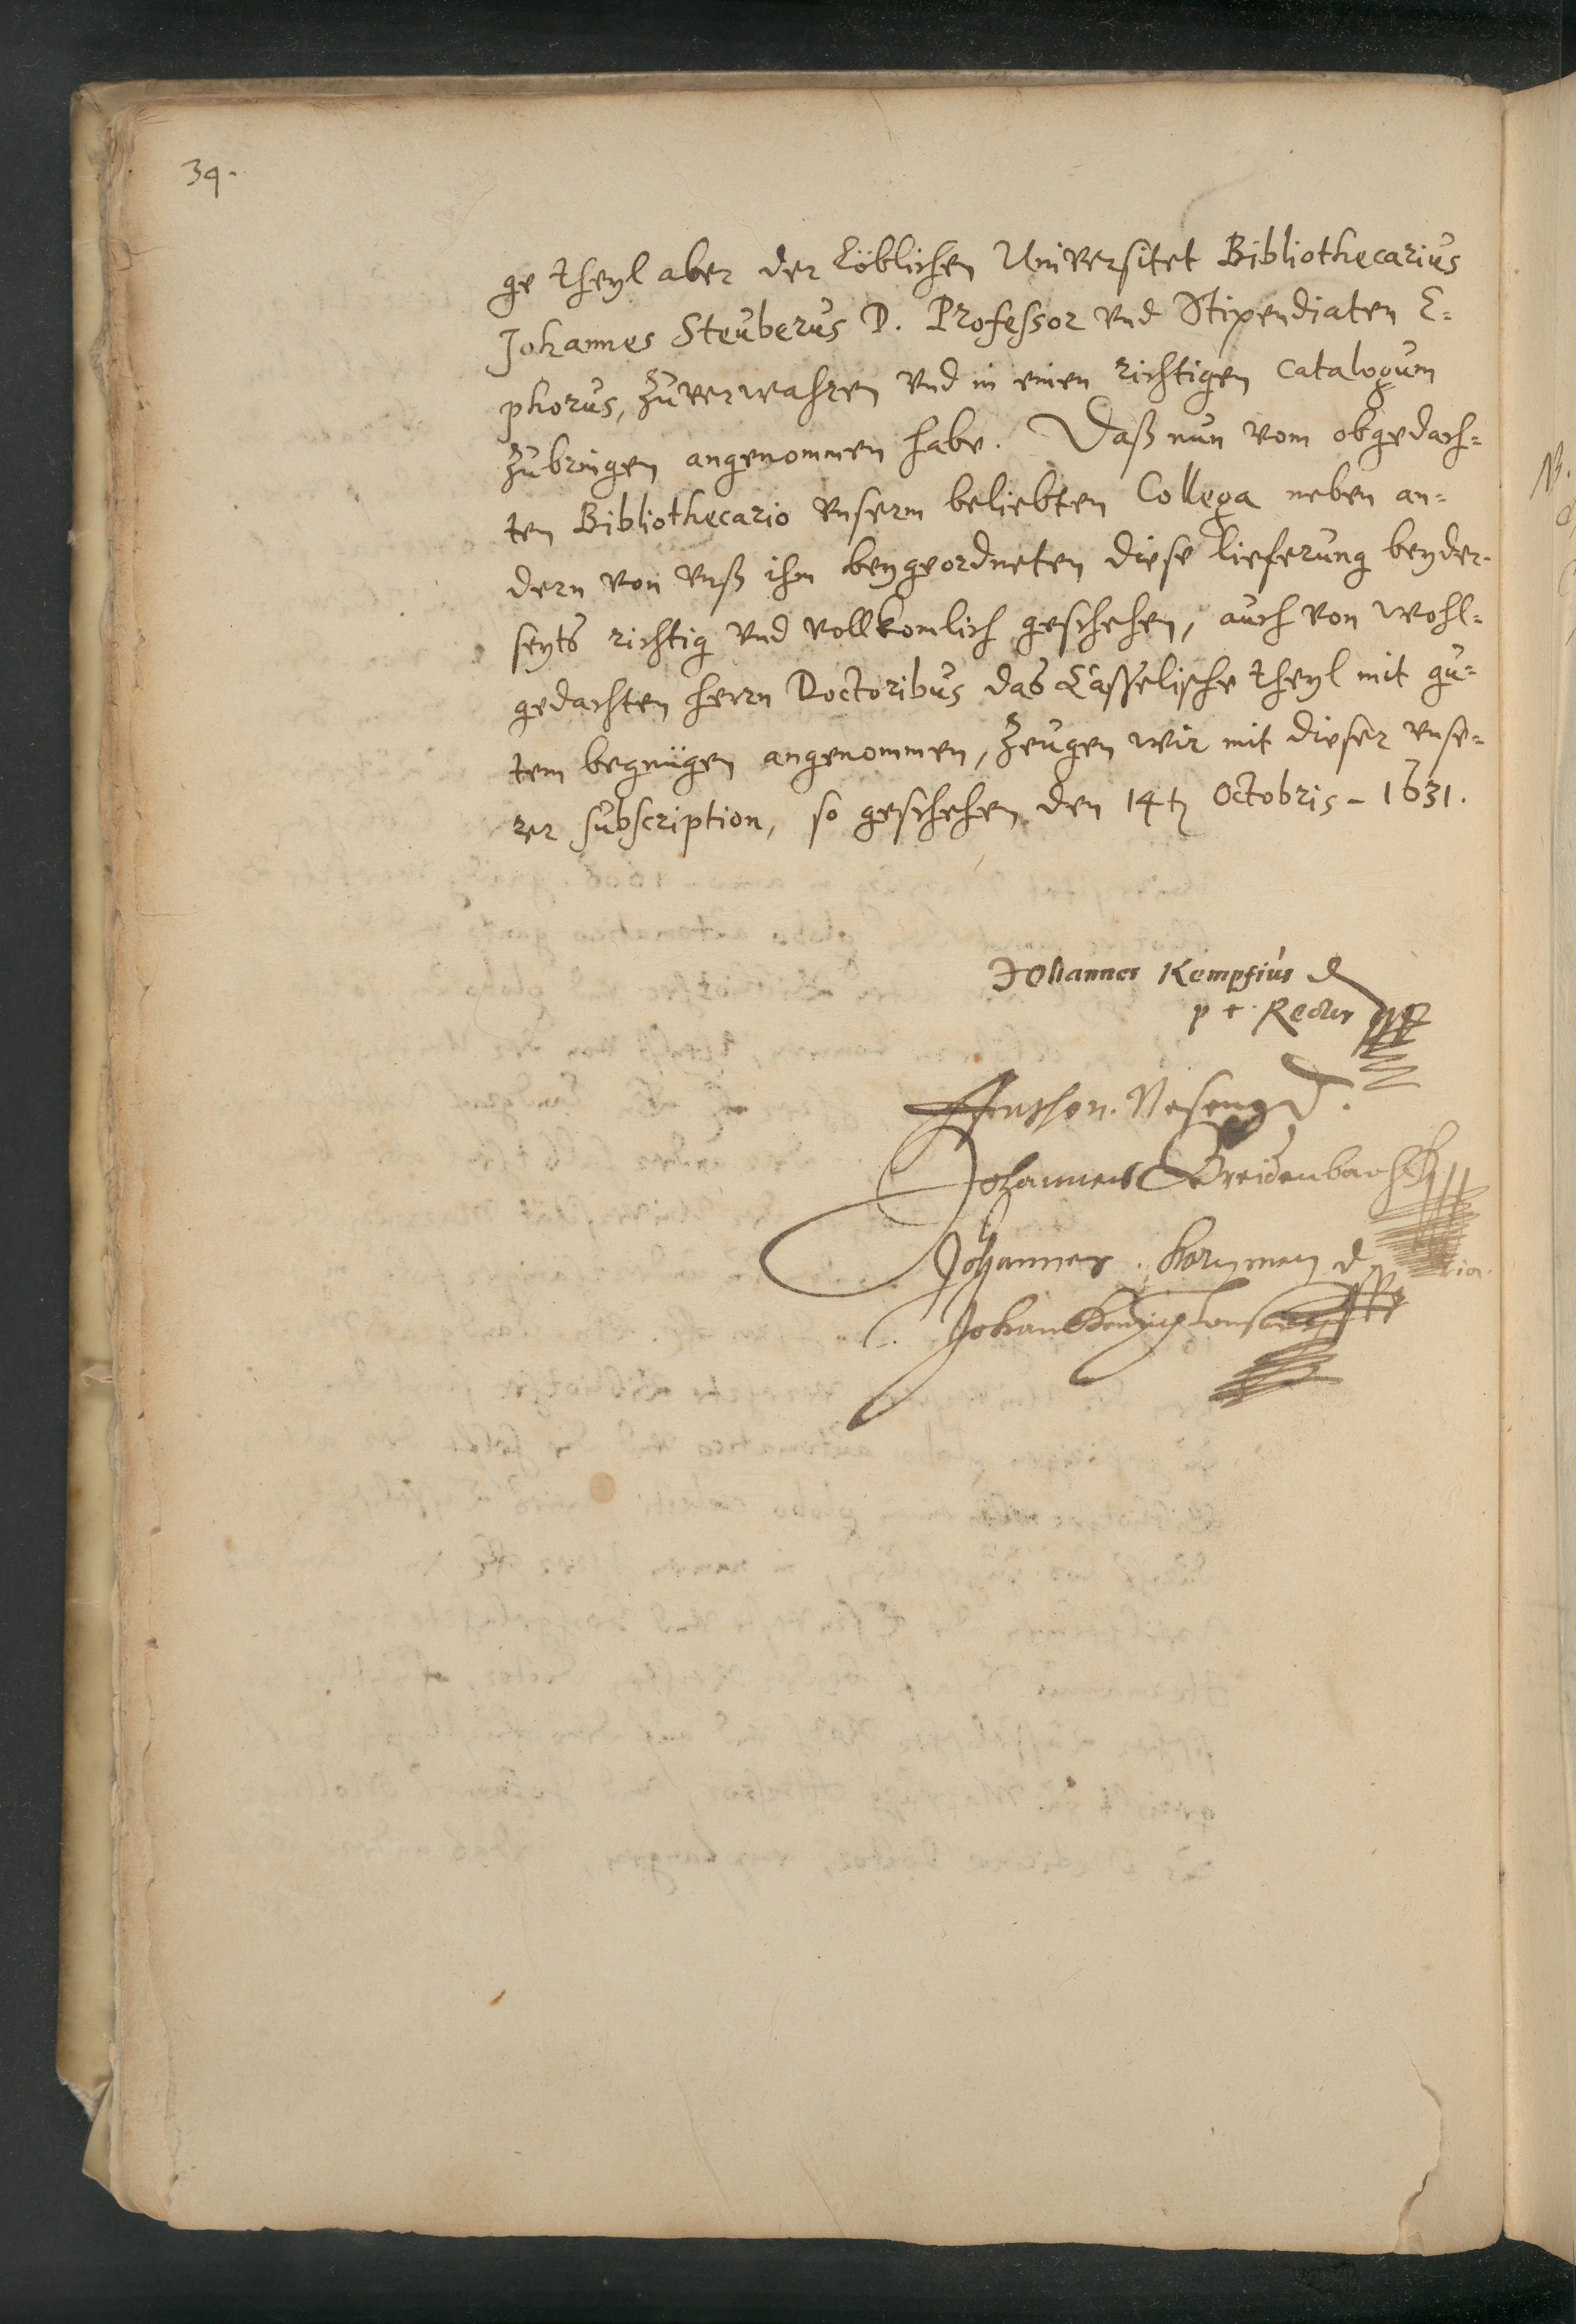 34.
ge theyl aber der Löblichen Universitet Bibliothecarius
Johannes Steuberus D. Professor vnd Stipendiaten E=
phorus, zuverwahren vnd in einen richtigen Catalogum
zubringen angenommen habe. Daß nun vom obgedach=
ten Bibliothecario vnserm beliebten Collega neben an=
dern von vnß ihm beygeordneten diese lieferung beyder-
seyts richtig vnd vollkomlich geschehen, auch von wohl=
gedachten herrn Doctoribus das Casselische theyl mit gu=
tem begnügen angenommen, zeugen wir mit dieser vnse=
rer subscription, so geschehen den 14ten Octobris - 1631.
Johannes Kempfius D
p t. Rector
Anthon. Nesen D.
Johannes Breidenbach
Johannes
Johan